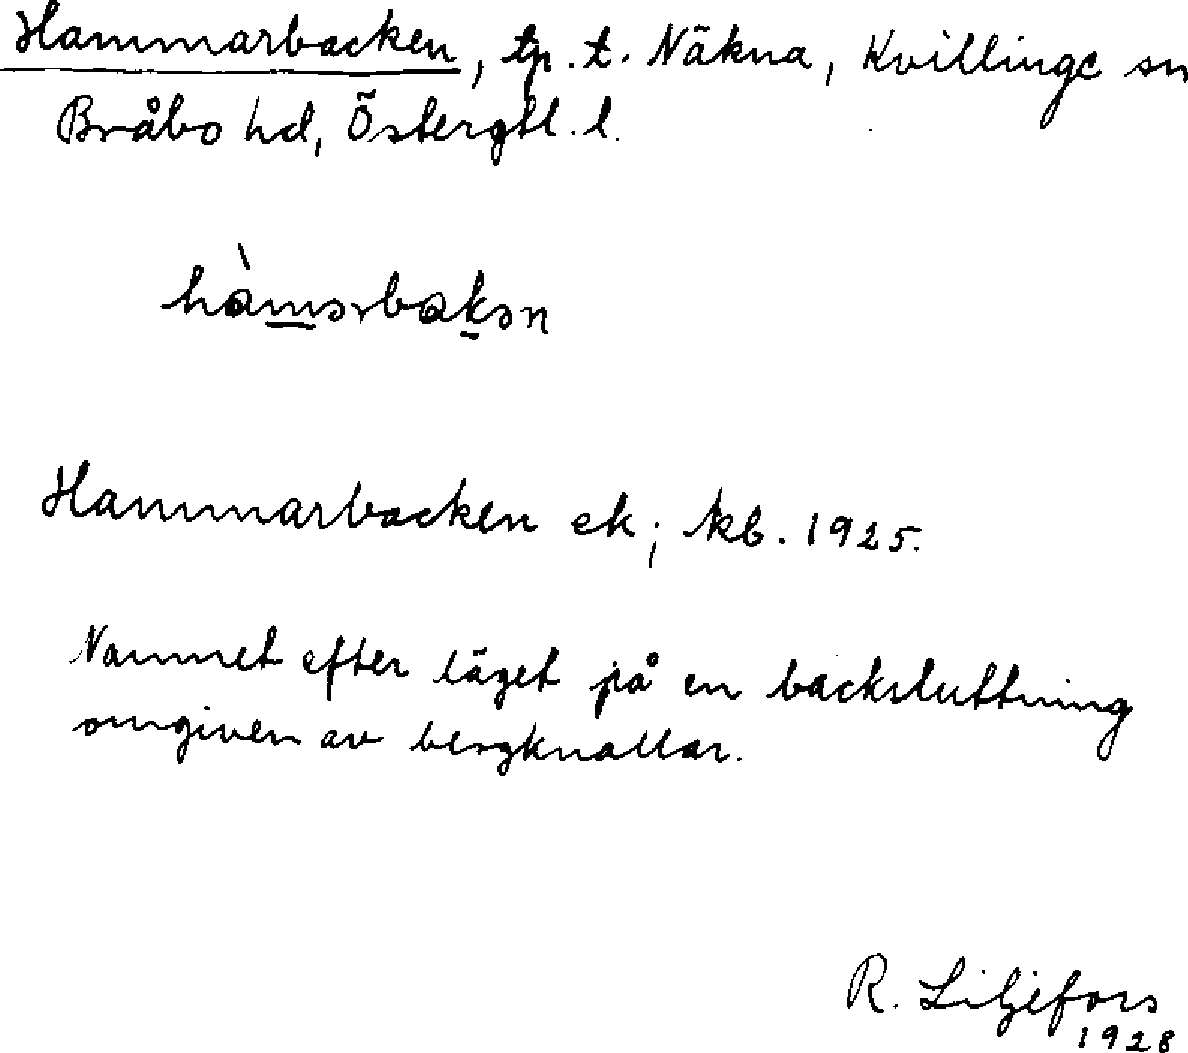 Hammarbacken, tp. t. Näkna, Kvillinge sn
Bråbo hd, Östergtl. l.
hàmərbakən
Hammarbacken ek; kb. 1925.
Namnet efter läget på en backsluttning
omgiven av bergknallar.
R. Liljefors
1928